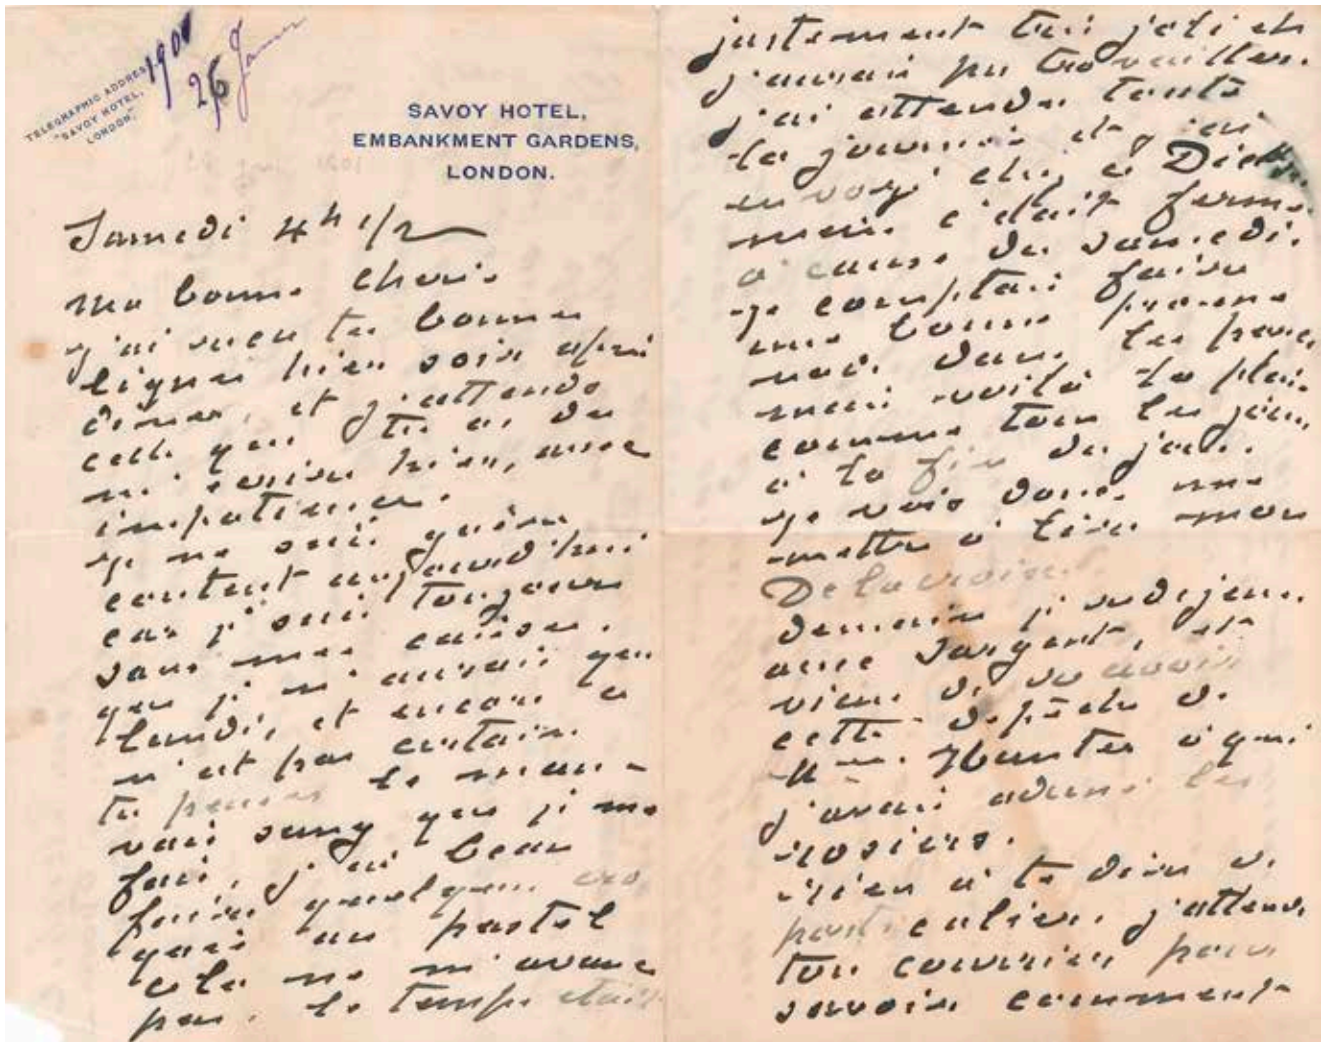 TELEGRAPHIC ADDRESS,
"SAVOY HOTEL,
LONDON"
1901
26 Janv
SAVOY HOTEL,
EMBANKMENT GARDENS,
LONDON.
Samedi 4h 1/2
Ma bonne chérie
j'ai reçu tes bonnes
lignes hier soir après
dîner, et j'attends
celle que tu as dû
m'écrire hier, avec
impatience.
je ne suis guère
content aujourd'hui
car je suis toujours
sans mes caisses.
que je n'aurais que
lundi, et encore ce
n'est pas certain.
tu penses le mau-
vais sang que je me
fais, j'ai beau
faire quelques cro
quis au pastel
cela ne m'avance
pas. le temps était
justement très joli et
j'aurais pu travailler.
j'ai attendu toute
la journée et j'ai
envoyé chez
mais c'était fermé
à cause du samedi.
je comptais faire
une bonne prome
nade dans les parcs,
mais voilà la pluie
comme tous les jours
à la fin du jour.
je vais donc me
mettre à lire mon
Delacroix.
demain je
avec Sargent, et
viens de
cette dépêche de
Mme. Hunter à qui
j'avais adressé les
rosiers.
rien à te dire de
particulier. j'attends
ton courrier pour
savoir comment